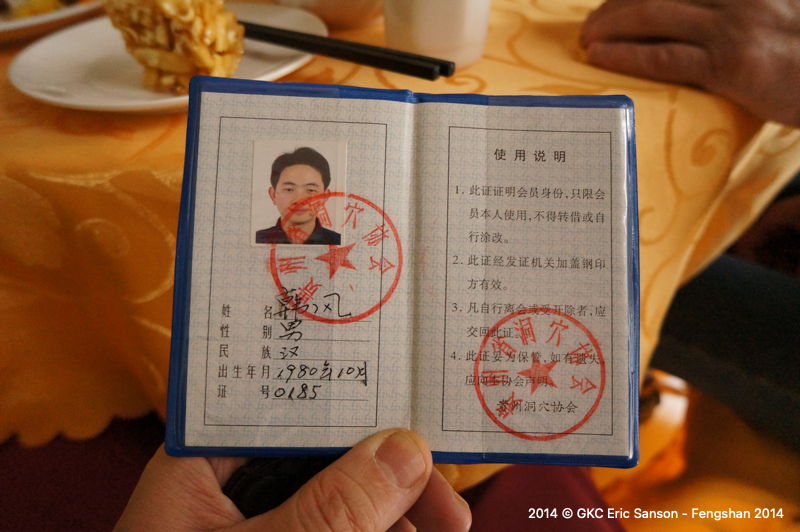 姓 名 韩风
性 别 男
民 族 汉
出生年月 1980年10月
证 号 0185
贵州省洞穴协会
使用说明
1. 此证证明会员身份,只限会
员本人使用,不得转借或自
行涂改。
2. 此证经发证机关加盖钢印
方有效。
3. 凡自行离会或受开除者,应
交回此证。
4. 此证妥为保管,如有遗失,
应向本协会声明。
贵州洞穴协会
2014 © GKC Eric Sanson - Fengshan 2014